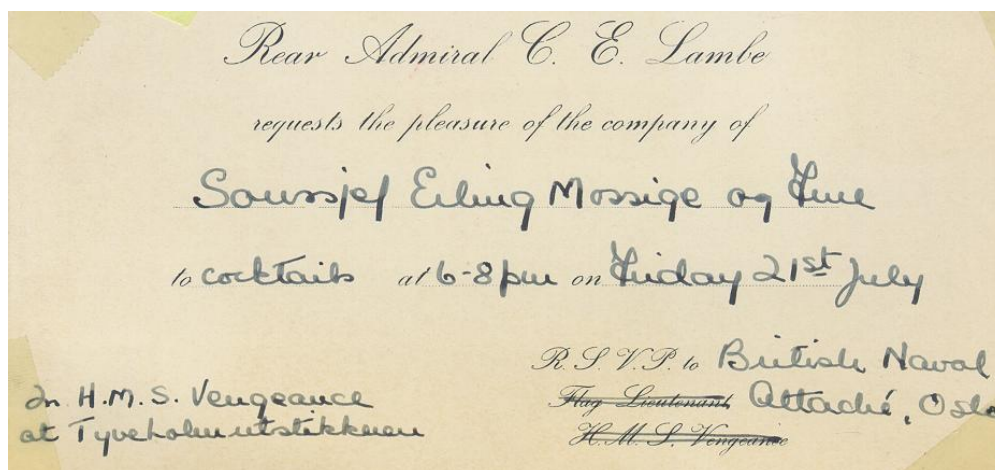 Rear Admiral C. E. Lambe
requests the pleasure of the company of
Soussjef Erling Mossige og Frue
to cocktails at 6-8 pm on Friday 21st July
R.S.V.P. to British Naval
Flag Lieutenant Attaché, Oslo
H.M.S. Vengeance
In H.M.S. Vengeance
at Tyveholmutstikkeren